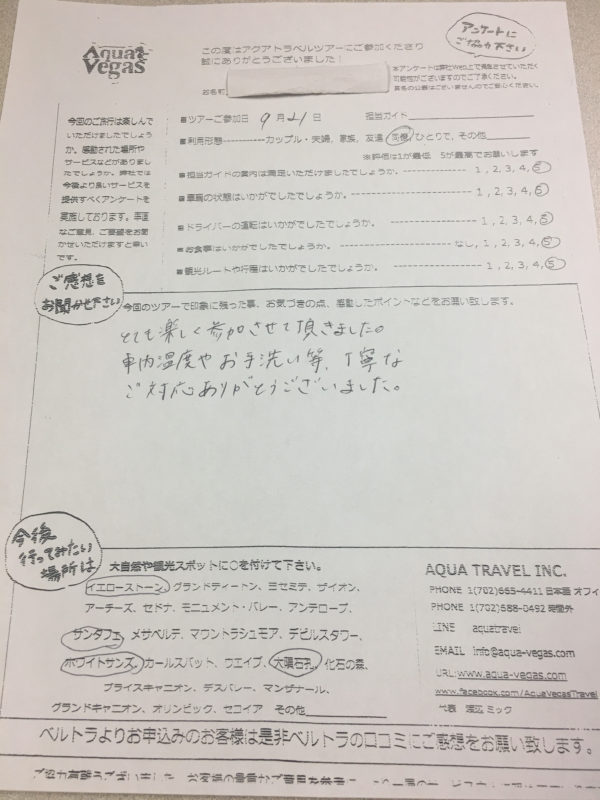 Aqua Vegas
この度はアクアトラベルツアーにご参加くださり
誠にありがとうございました！
アンケートに
ご協力下さい
本アンケートは弊社Web上で掲載させていただく
可能性がございますのでご了承ください。
実名の公表はございませんのでご安心ください。
お名前
今回のご旅行は楽しんで
いただけましたでしょう
か。感動された場所や
サービスなどがありまし
たでしょうか。弊社では
今後より良いサービスを
提供すべくアンケートを
実施しております。率直
なご意見、ご要望をお聞
かせいただけますと幸い
です。
■ツアーご参加日 9月21日 担当ガイド
■利用形態-----------カップル・夫婦, 家族, 友達, 同僚, ひとりで, その他
※評価は1が最低 5が最高でお願いします
■担当ガイドの案内は満足いただけましたでしょうか。 ---------------- 1, 2, 3, 4, 5
■車両の状態はいかがでしたでしょうか。 ---------------- 1, 2, 3, 4, 5
■ドライバーの運転はいかがでしたでしょうか。 ---------------- 1, 2, 3, 4, 5
■お食事はいかがでしたでしょうか。 ---------------- なし, 1, 2, 3, 4, 5
■観光ルートや行程はいかがでしたでしょうか。 ---------------- 1, 2, 3, 4, 5
ご感想を
お聞かせください
今回のツアーで印象に残った事、お気づきの点、感動したポイントなどをお願い致します。
とても楽しく参加させて頂きました。
車内温度やお手洗い等、丁寧な
ご対応ありがとうございました。
今後
行ってみたい
場所は
大自然や観光スポットに○を付けて下さい。
イエローストーン、グランドティートン、ヨセミテ、ザイオン、
アーチーズ、セドナ、モニュメント・バレー、アンテロープ、
サンタフェ、メサベルデ、マウントラシュモア、デビルスタワー、
ホワイトサンズ、カールスバット、ウエイブ、大隕石孔、化石の森、
ブライスキャニオン、デスバレー、マンザナール、
グランドキャニオン、オリンピック、セコイア その他
AQUA TRAVEL INC.
PHONE 1(702)665-4411 日本語 オフィ
PHONE 1(702)688-0492 時間外
LINE aquatravel
EMAIL info@aqua-vegas.com
URL:www.aqua-vegas.com
www.facebook.com/AquaVegasTravel
代表 渡辺 ミック
ベルトラよりお申込みのお客様は是非ベルトラの口コミにご感想をお願い致します。